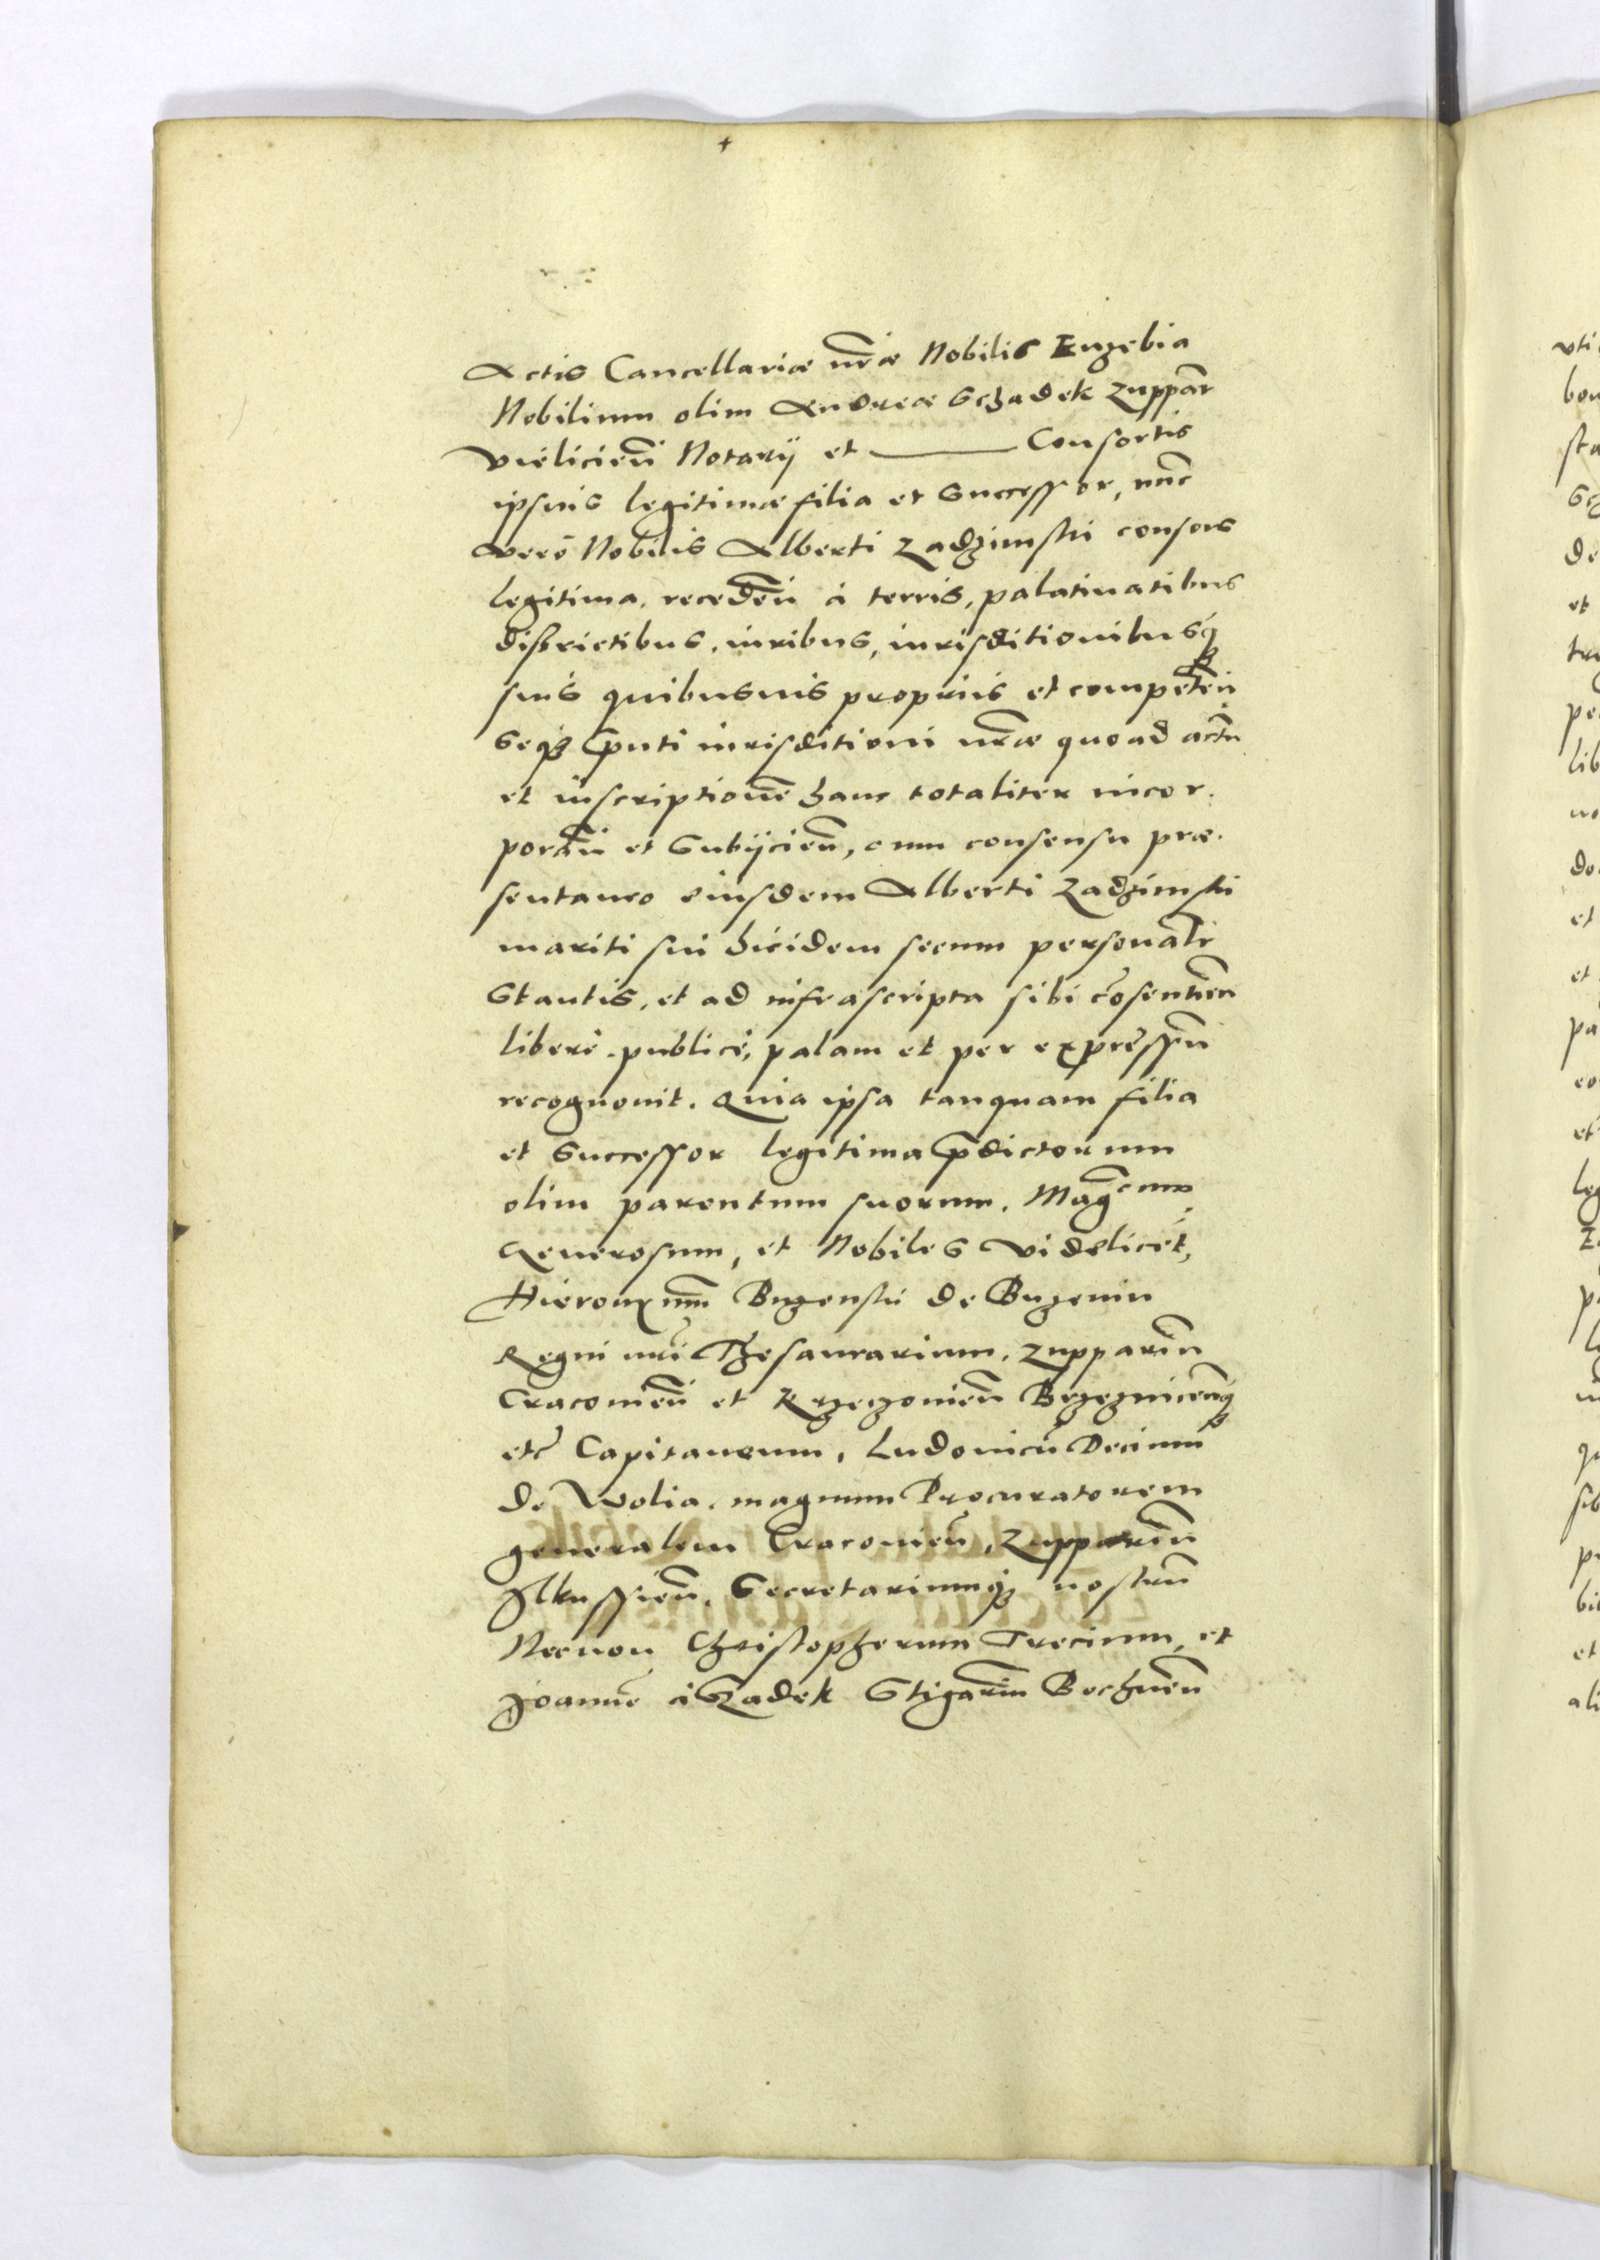 Actis Cancellariæ nr̃æ Nobilis Euzebia
Nobilium olim Andreæ Schadek Zuppar̃
Vieliciẽn Notarij et ——— Consortis
ipsius legitimæ filia et Successor, nũc
vero Nobilis Alberti Zadzimski consors
legitima, recedẽn à terris, palatinatibus
districtibus, iuribus, iurisditionibusq̃
suis quibusuis proprijs et competẽn
Seq̃ p̃nti iurisditioni nr̃æ quo ad actũ
et inscriptionẽ hanc totaliter incor-
porãn et Subijciẽn, cum consensu præ-
sentaneo eiusdem Alberti Zadzimski
mariti sui ibidem secum personalr̃
Stantis, et ad infrascripta sibi cõsentiẽn
liberè, publicè, palam et per expressũ
recognouit. Quia ipsa tanquam filia
et Successor legitima p̃dictorum
olim parentum suorum. Mag̃cum,
Generosum, et Nobiles videlicet,
Hieronymũ Buzenski de Buzenin
Regni nr̃i Thesaurarium, Zupparũ
Cracouiẽn et Krzeczouiẽn Brzeznicẽnq̃
etc̃ Capitaneum, Ludouicũ Deciũm
de Wolia, magnum Procuratorem
generalem Cracouiẽn, Zupparũ
Ilkussiẽn, Secretariumq̃ nostrũ
Necnon Christopherum Trecium, et
Joannẽ à Szadek Stigariũ Bochnẽn